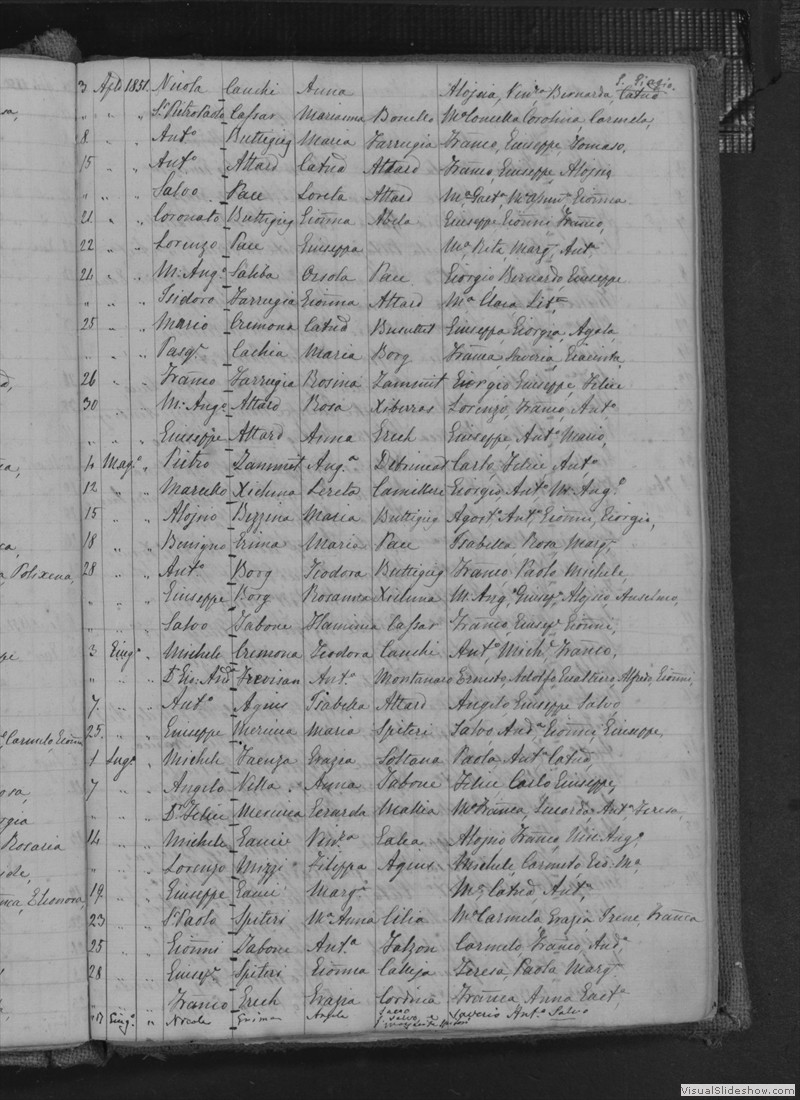 S. Giorgio.
3 Aple 1851. Nicola Cauchi Anna Aloisia, Vin.ca Bernarda, Catnd
" " " Sr. Pietro Paolo Cassar Marianna Bonello Ma Concetta Carolina, Carmela,
8 " " Anto Buttigieg Maria Farrugia Franco, Giuseppe, Tomaso,
15 " " Anto Attard Catnd Attard Franco, Giuseppe Aloisio
" " " Salvo Pace Loreta Attard Gionna
21 " " Coronato Buttigieg Gionna Abela Giuseppe Gionni Franco,
22 " " Lorenzo Pace Giuseppa Ma Rita Marg, Anta,
24 " " M. Ango Saliba Orsola Pace Giorgio Bernardo Giuseppe
" " " Isidoro Farrugia Gionna Attard Ma Clara
25 " " Mario Cremona Catnd Busuttil Giuseppa, Giorgia, Agata
" " " Pasqe Cachia Maria Borg Franca, Saveria, Giacinta,
26 " " Franco Farrugia Rosina Zammit Giorgio Giuseppe, Felice
30 " " M. Ango Attard Rosa Xiberras Lorenzo, Franco, Anto
" " " Giuseppe Attard Anna Grech Giuseppe Anto Mario,
4 Mago " Pietro Zammit Anga Carlo, Felice Anto
12 " " Xicluna Loreta Camilleri Giorgio, Anto M. Ango
15 " " Aloisio Bezzina Maria Buttigieg Agosto Anto, Gionni, Giorgio,
18 " " Benigno Grima Maria Pace Isabella Rosa Marg,
28 " " Anto Borg Teodora Buttigieg Franco Paolo Michele,
" " Giuseppe Borg Rosanna Xicluna M. Ango, Giuse, Aloisio, Anselmo,
" " Salvo Tabone Flaminia Cassar Franco, Giuse Gionni,
3 Giugo " Michele Cremona Teodora Cauchi Anto, Mich, Franco,
" " " Dr. Gio. Anda Trevisan Anta Montanaro Ernesto, Adolfo, Gualtiero, Alfredo, Gionni,
7. " " Anto Agius Isabella Attard Angelo Giuseppe Salvo
25. " " Giuseppe Mercieca Maria Spiteri Salvo And.a Gionni, Giuseppe,
1 Lugo " Michele Faenza Grazia Soltana Paola Anta Catnd,
7 " " Angelo Vella. Anna Tabone Felice Carlo Giuseppe,
" " " Dr. Felice Mercieca Gerarda Mallia Ma Franca, Anta, Teresa,
14 " " Michele Gauci Vin.ca Galea Aloisio Franco, Vinc. Ango
" " " Lorenzo Mizzi Filippa Agius Michele, Carmelo, Gio. Ma
19. " " Giuseppe Gauci Marga Ma, Catnd Anta,
23 " " Sr. Paolo Spiteri Ma Anna Cilia Ma Carmela Grazia Irene, Franca
25 " " Gionni Tabone Anta Falzon Carmelo Franco, Anda
28 " " Giuse Spiteri Gionna Calleja Teresa, Paola Marg,
" " " Franco Grech Grazia Cordina Franca Anna Gaeta
17 Giugo " Nicola Grima Angela Saverio Anto Salvo
Polixena,
Carmelo, Gionni
Rosaria
Elionora
VisualSlideshow.com